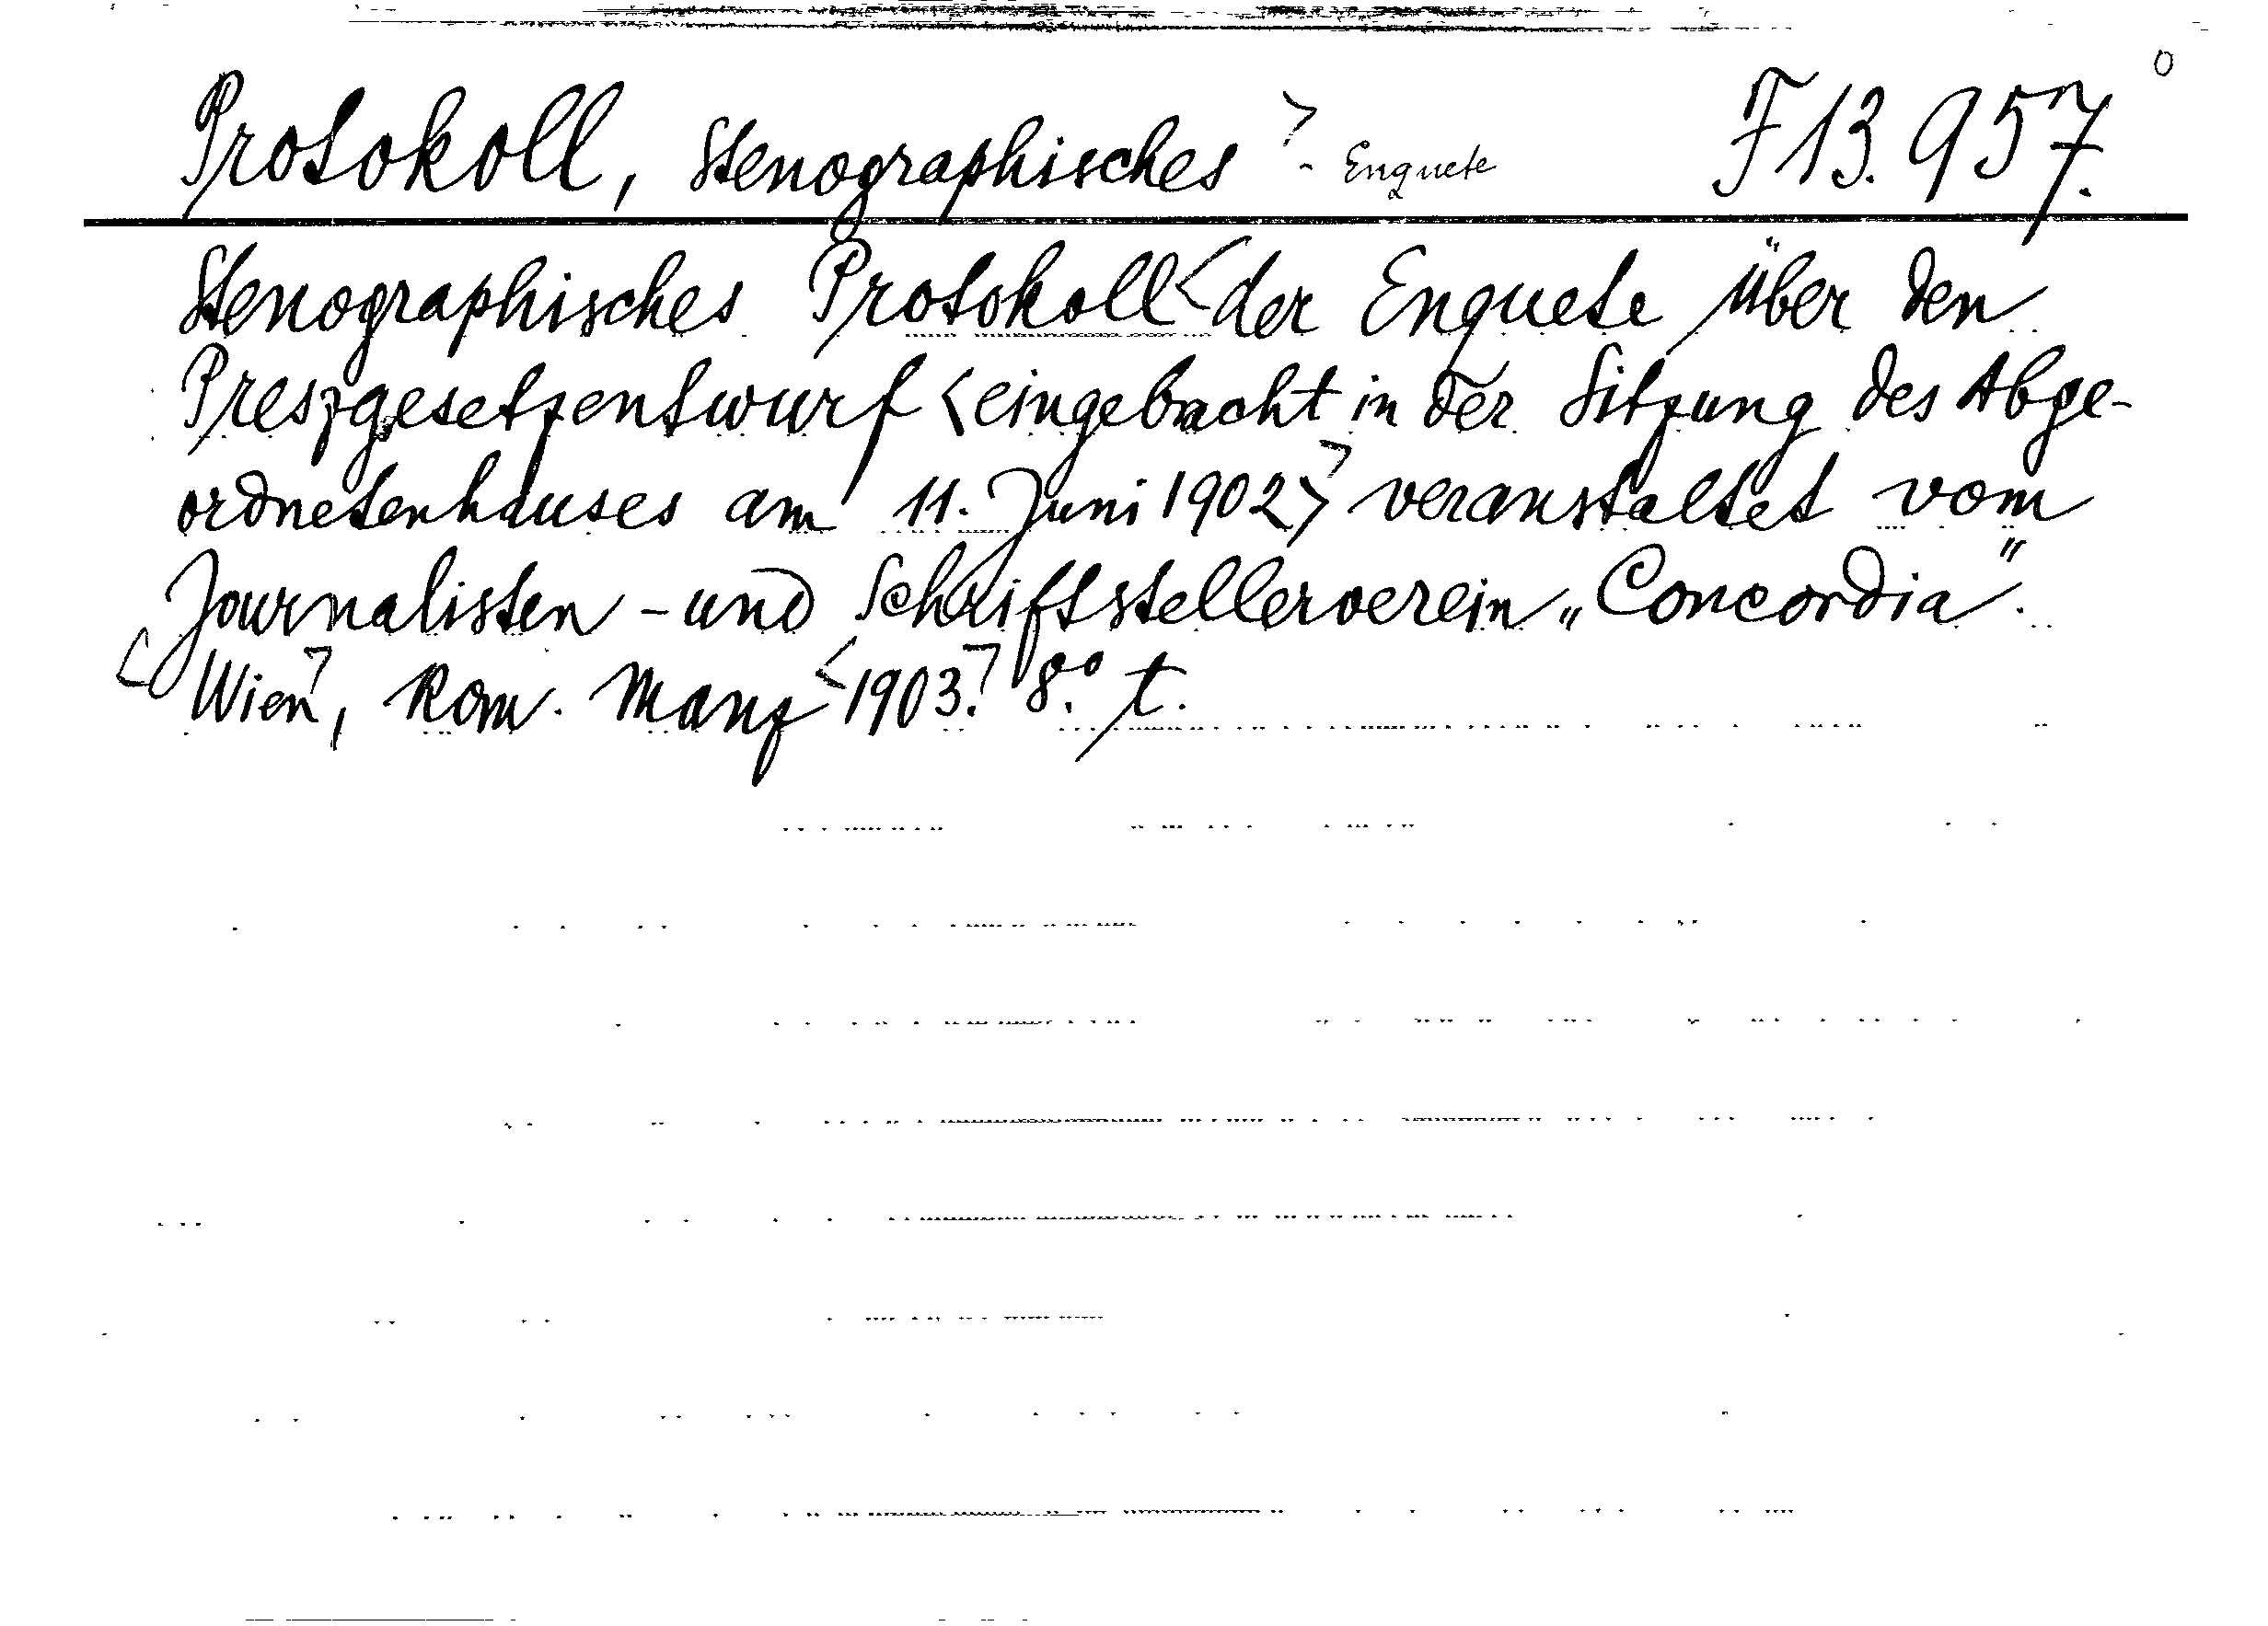 Protokoll, Stenographisches> - Enquete F 13.957.
Stenographisches Protokoll <der Enquete über den
Preszgesetzentwurf <eingebracht in der Sitzung des Abge-
ordnetenhauses am 11. Juni 1902>> veranstaltet vom
Journalisten - und Schriftstellerverein „Concordia".
<Wien>, Kom. Manz <1903.> 8.° t.